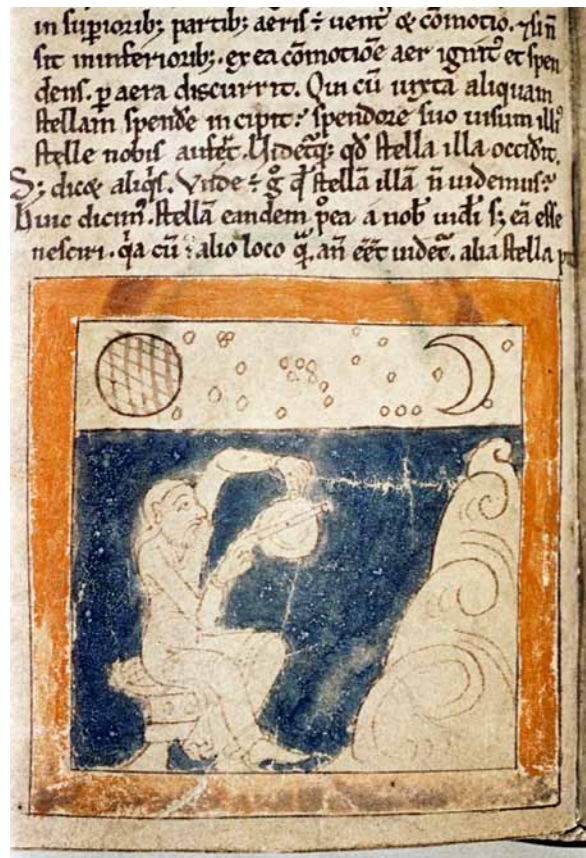 in suꝑiorib; partib; aeris ÷ uent᾽ & cōmotio. Si ñ
sit in inferiorib;. ex ea cōmotiōe aer ignit᾽ et spen
dens. ꝑ aera discurrit. Qui cū iuxta aliquam
stellam spendē incipit: spendore suo uisum illi᾽
stelle nobis aufert. Videtq; qd stella illa occidit.
S; dicet aliqͥs. Vnde ÷ gͦ qd stellā illā ñ uidemus?
Huic dicim᾽. stellā eandem pͦea a nob᾽ uidi s; eā esse
nesciri. qͥa cū ÷ alio loco qͣ̄. añ eēt uidet᾽. alia stella